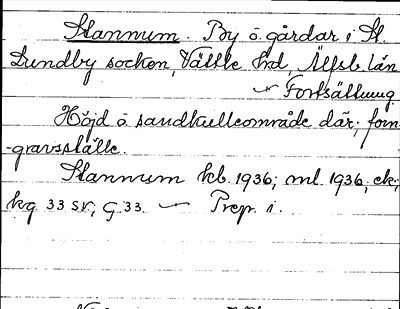 Stannum. By o. gårdar i St.
Lundby socken, Vättle hd, Älfsb. län
— Fortsättning
Höjd o sandkulleområde där; forn-
-gravställe.
Stannum kb. 1936; ml. 1936, ek;
kg 33 sv, G 33. — Prep. i.